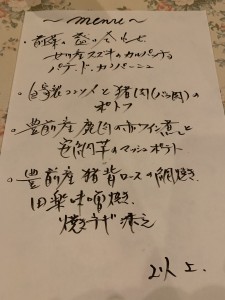 ～menu～
・前菜の盛り合わせ
産スズキのカルパッチョ
パテ・ド・カンパーニュ
・自家製コンソメと猪肉(バラ肉)の
ポトフ
・豊前産鹿肉の赤ワイン煮と
安納芋のマッシュポテト
・豊前産猪背ロースの網焼き
田楽味噌焼き
焼きネギ添え
以上.